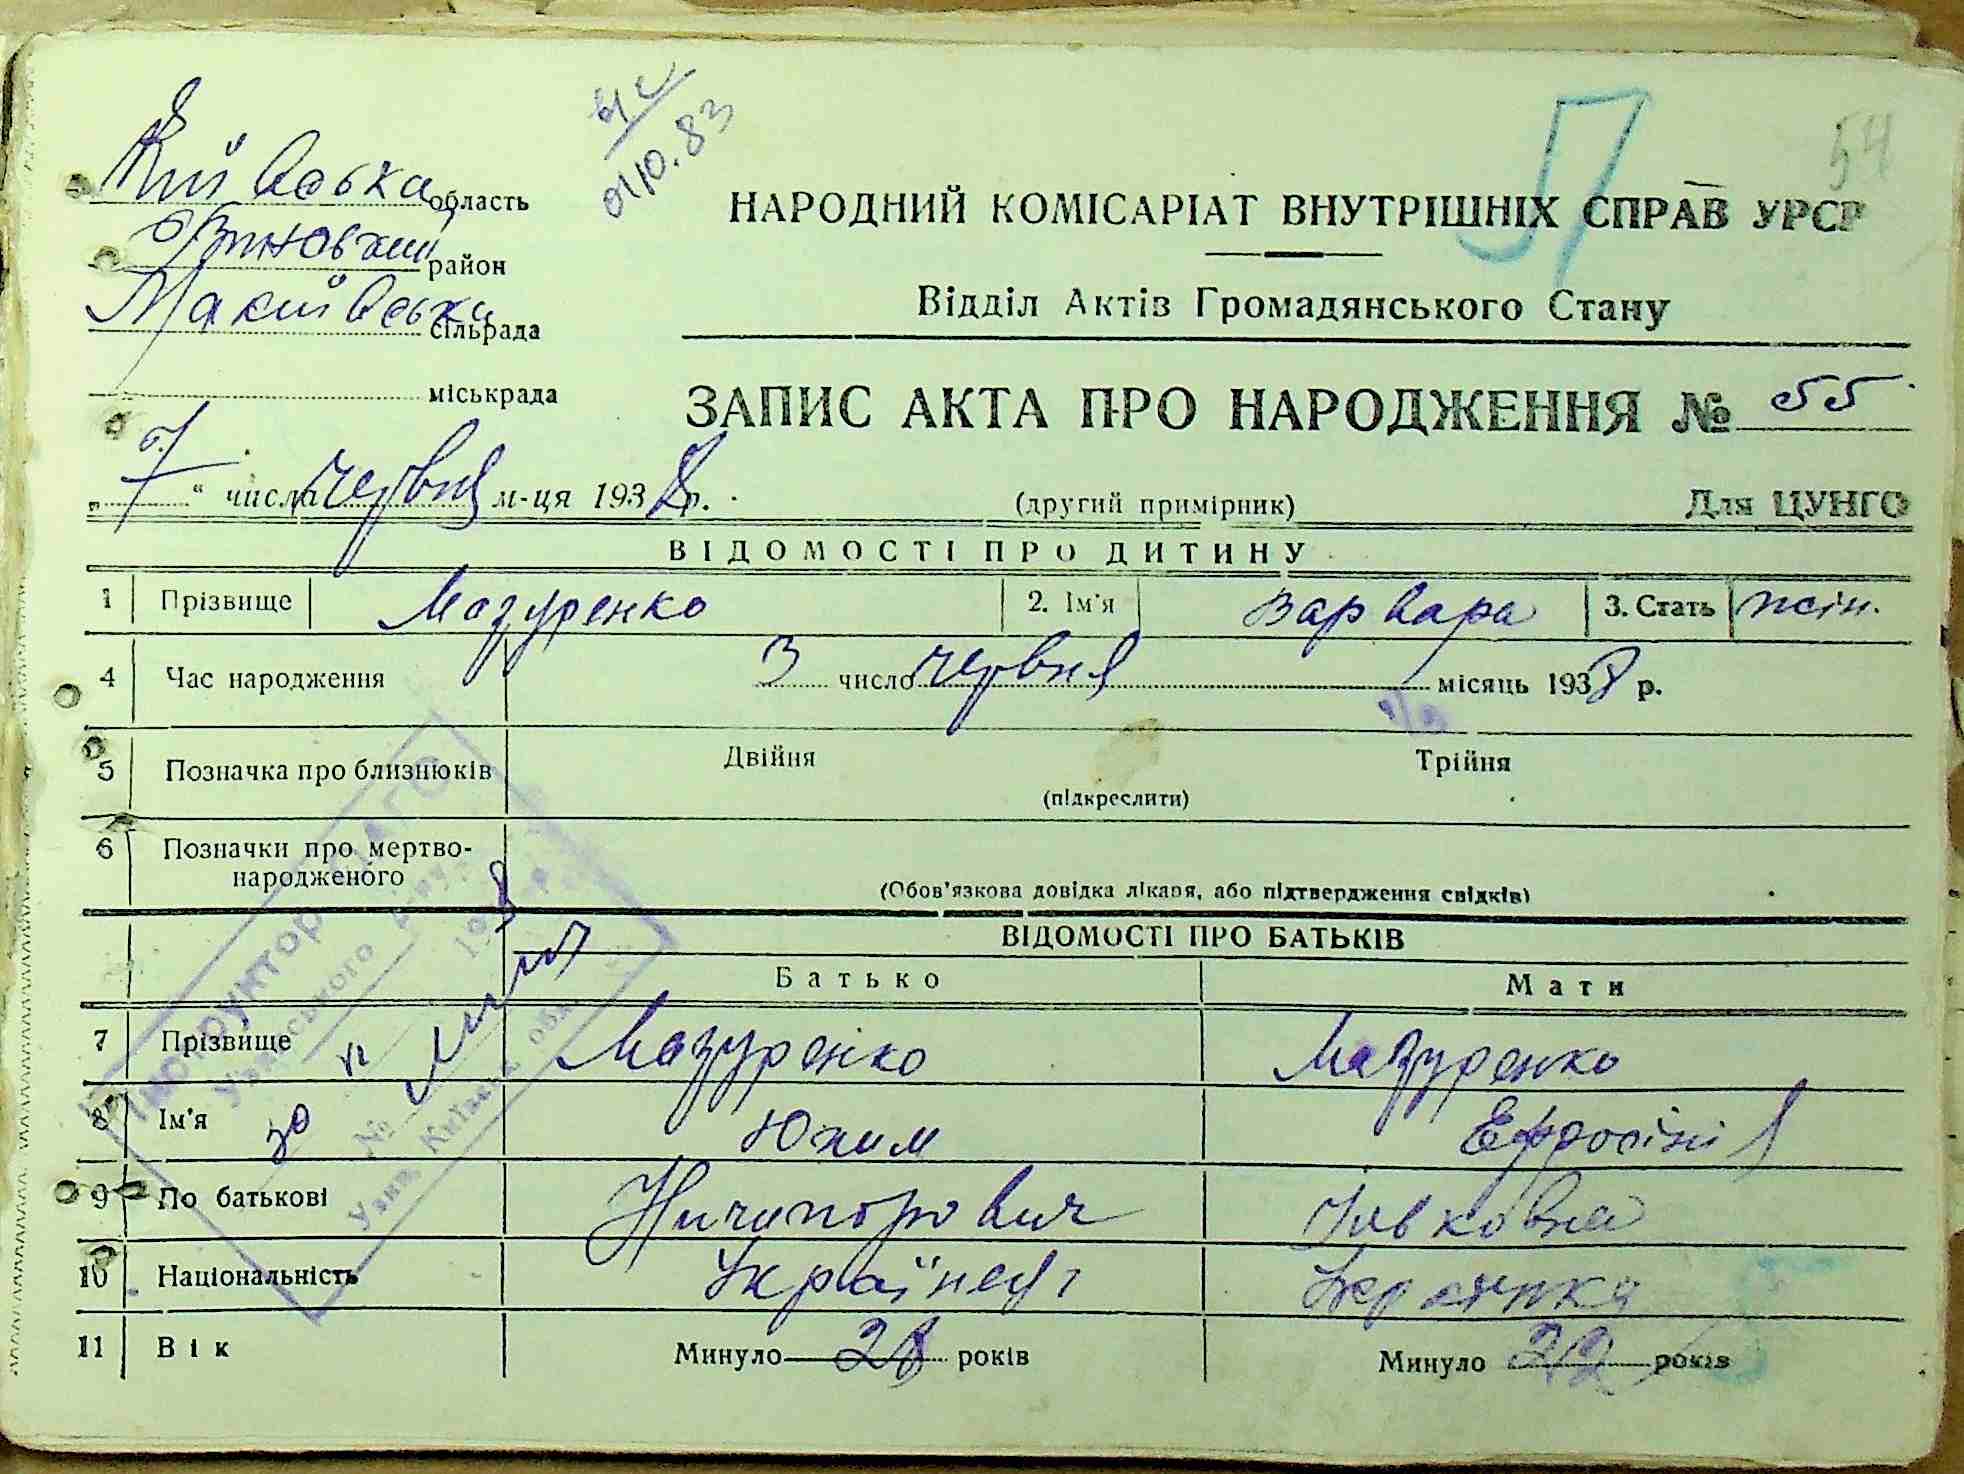 54
Київська область
район
Макиївська сільрада
міськрада
01.10.83
НАРОДНИЙ КОМІСАРІАТ ВНУТРІШНІХ СПРАВ УРСР
Відділ Актів Громадянського Стану
ЗАПИС АКТА ПРО НАРОДЖЕННЯ № 55
„7“ числа червня м-ця 1938 р.
(другий примірник)
Для ЦУНГО
ВІДОМОСТІ ПРО ДИТИНУ
1 Прізвище Мазуренко 2. Ім'я Варвара 3. Стать жін.
4 Час народження 3 число червня місяць 1938 р.
5 Позначка про близнюків Двійня Трійня
(підкреслити)
6 Позначки про мертво-
народженого
(Обов'язкова довідка лікаря, або підтвердження свідків)
ВІДОМОСТІ ПРО БАТЬКІВ
Батько Мати
7 Прізвище Мазуренко Мазуренко
8 Ім'я Юхим Ефросінія
9 По батькові Ничипорович
10 Національність Українець Українка
11 Вік Минуло 28 років Минуло років
Інспруктор
№
Київськ. обл.